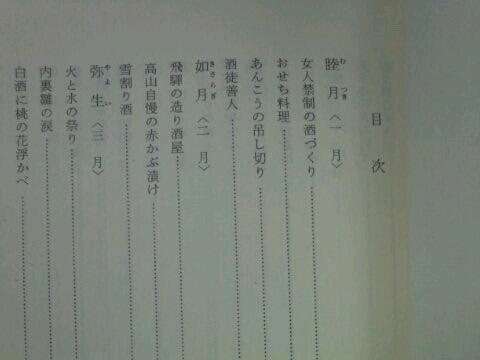 目次
睦月〈一月〉
むつき
女人禁制の酒づくり
おせち料理
あんこうの吊し切り
酒徒善人
如月〈二月〉
きさらぎ
飛驒の造り酒屋
高山自慢の赤かぶ漬け
雪割り酒
弥生〈三月〉
やよい
火と水の祭り
内裏雛の涙
白酒に桃の花浮かべ